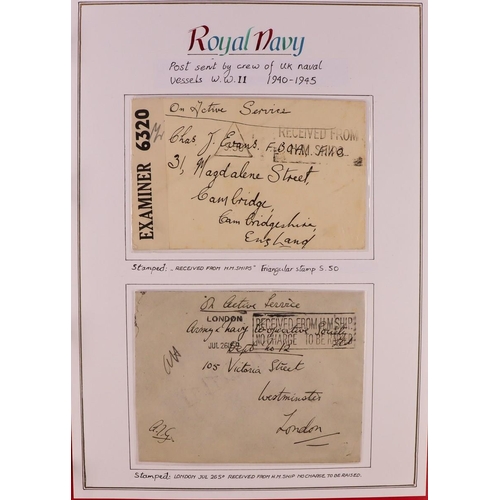 Royal Navy
Post sent by crew of UK naval
vessels W.W.II 1940-1945
EXAMINER 6320
On Active Service
RECEIVED FROM
H.M. SHIPS
Chas J. Evans.
31, Magdalene Street,
Cambridge,
Cambridgeshire,
England
Stamped: "RECEIVED FROM H.M.SHIPS" Triangular stamp S.50
On Active Service
LONDON
JUL 26
RECEIVED FROM H.M. SHIP
NO CHARGE TO BE RAISED
Army & Navy Co-operative Society
Dept no 12
105 Victoria Street
Westminster
London
Stamped: LONDON JUL 26 5P RECEIVED FROM H.M SHIP NO CHARGE TO BE RAISED.